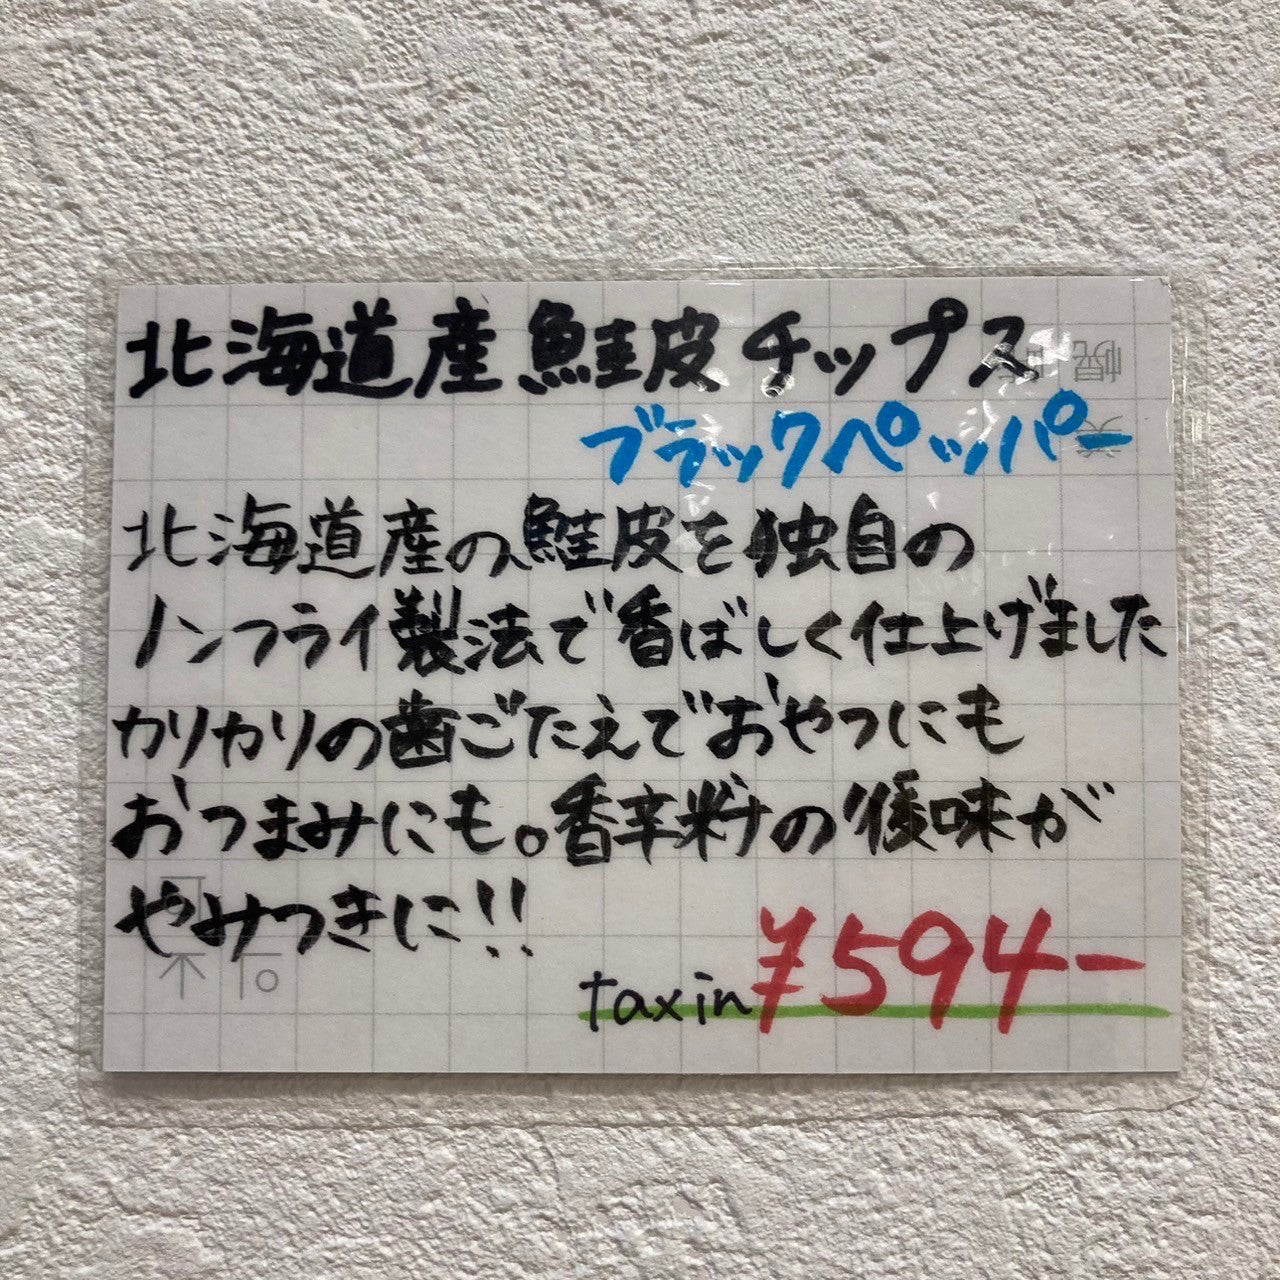 北海道産鮭皮チップス
ブラックペッパー
北海道産の鮭皮を独自の
ノンフライ製法で香ばしく仕上げました
カリカリの歯ごたえでおやつにも
おつまみにも。香辛料の後味が
やみつきに!!
taxin ¥594-